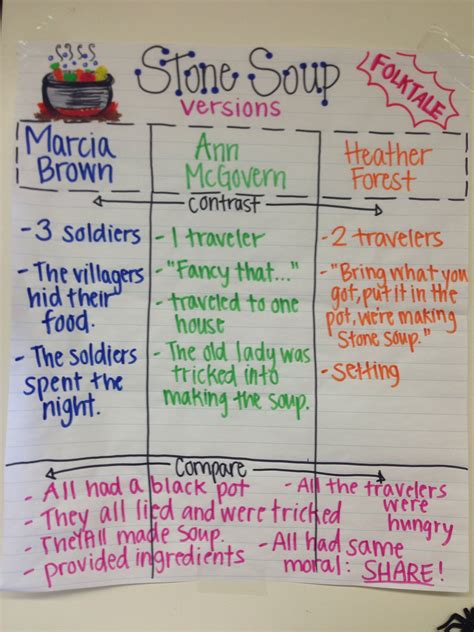 Stone Soup
versions
FOLKTALE
Marcia
Brown
Ann
McGovern
Heather
Forest
Contrast
- 3 soldiers
- The villagers
hid their
food.
- The soldiers
spent the
night.
- 1 traveler
- "Fancy that..."
- traveled to one
house
- The old lady was
tricked into
making the soup.
- 2 travelers
- "Bring what you
got, put it in the
pot, we're making
Stone soup."
- setting
Compare
- All had a black pot
- They all lied and were tricked
- They All made soup.
- provided ingredients
- All the travelers
were
hungry
- All had same
moral: SHARE!